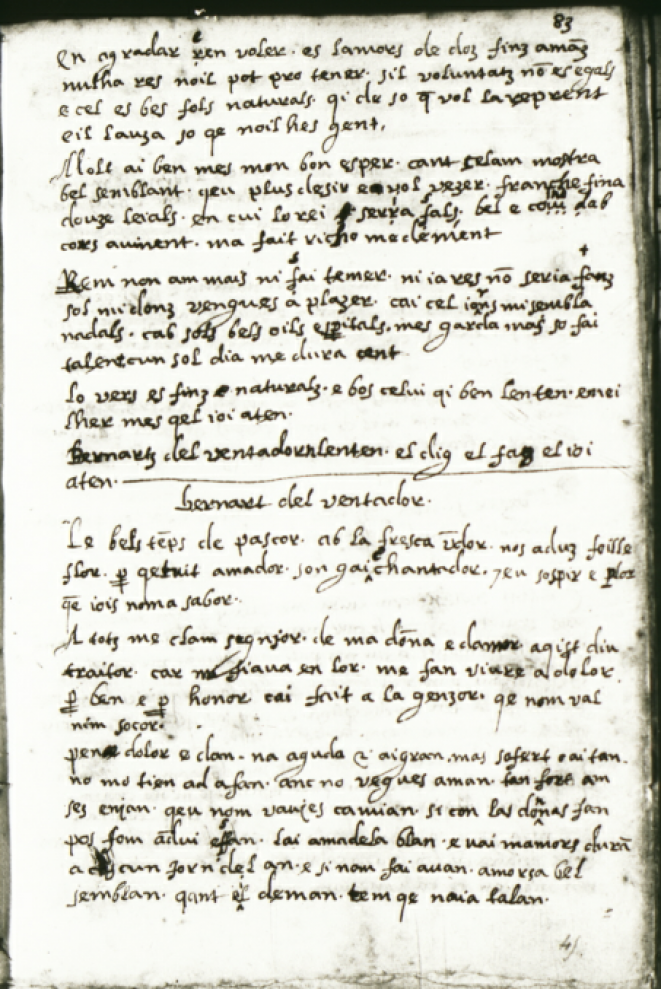 83
En agradar ren voler · es lamors de doz finz amãz
nulha res noil pot pro tener · sil voluntatz nõ es egals
e cel es bes fols naturals · qi de so q̃ vol la reprent
e il lauza so qe noil hes gent,
Molt ai ben mes mon bon esper · cant celam mostra
bel semblant · qeu plus desir e vol vezer · franche fina
douze leials · en cui lo rei serra sals · bel e cab
cors auinent · ma fait richo me clement
Rem non am mais ni sai temer · ni ia res nõ seria fanz
sos midonz vengues a plazer · cai cel iorns mi sembla
nadals · cab sols bels oils esp̱itals · mes garda mas so fai
talen cun sol dia me dura cent
lo vers es finz e naturalz · e bos celui qi ben lenten · e mei
lher mes qel ioi aten ·
Bernartz del ventadorn lenten · el diç el faç el ioi
aten ·
bernart del ventador ·
Le bels tẽps de pascor · ab la fresca v̄dor · nos aduz foille
flor · p̱ qe tuit amador · son gai e chantador · 7 eu sospir e plor
qe iois noma sabor ·
A totz me clam segnjor · de ma dõna e damor · aqist diu
traitor · car fiaua en lor · me fan viure a dolor
p̱ ben e p̱ honor cai fait a la genzor · qe nom val
nim socor ·
pena dolor e dan · na aguda & ai gran · mas sofert o ai tan ·
no mo tien ad afan · anc no vegues aman · tan fort am
ses enjan · qeu nom vaujes camian · si con las dõnas fan
pos fom adui efan · lai amadela blan · e vai mamors durã
a cascun jorn del an · e si nom fai auan · amorsa bel
semblan · qant el deman · tem qe naia talan ·